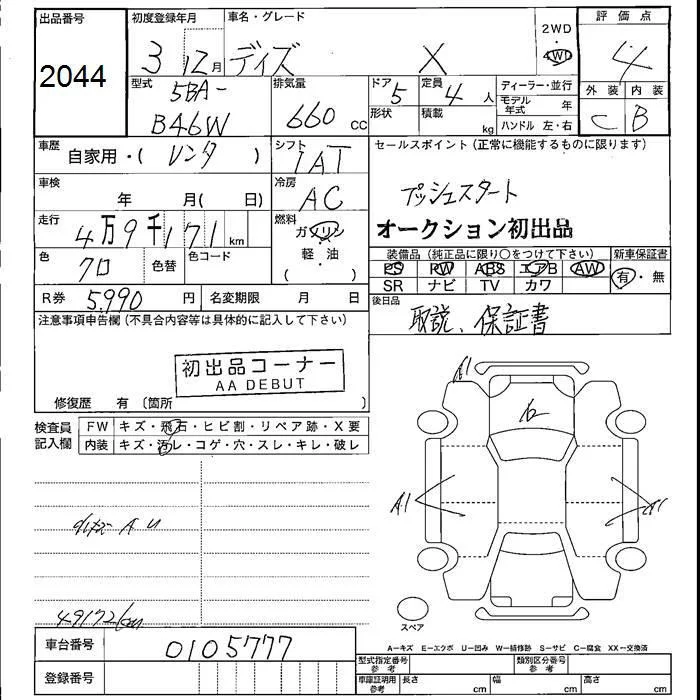 出品番号 初度登録年月 車名・グレード 2WD 評価点
2044 3 12月 デイズ X 4WD 4
型式 排気量 ドア 定員 ディーラー・並行 外装 内装
5BA- 5 4人 モデル年式 年 C B
B46W 660 cc 形状 積載 kg ハンドル 左・右
車歴 シフト セールスポイント (正常に機能するものに限ります)
自家用・( レンタ ) IAT
車検 冷房 プッシュスタート
年 月( 日) AC
走行 燃料 オークション初出品
4万9千171 km ガソリン
色 色替 色コード 軽・油 装備品 (純正品に限り○をつけて下さい) 新車保証書
クロ ( ) PS PW ABS エアB AW 有・無
R券 5,990 円 名変期限 月 日 SR ナビ TV カワ
注意事項申告欄 (不具合内容等は具体的に記入して下さい) 後日品
取説、保証書
初出品コーナー
AA DEBUT
修復歴 有 〔箇所 〕
検査員 FW キズ・飛石・ヒビ割・リペア跡・X要
記入欄 内装 キズ・汚レ・コゲ・穴・スレ・キレ・破レ
A1
A1
A1
49172km
スペア
車台番号 0105777
A=キズ E=エクボ U=凹み W=補修跡 S=サビ C=腐食 XX=交換済
登録番号
型式指定番号 参考 類別区分番号 参考
車庫証明用 参考 長さ cm 幅 cm 高さ cm